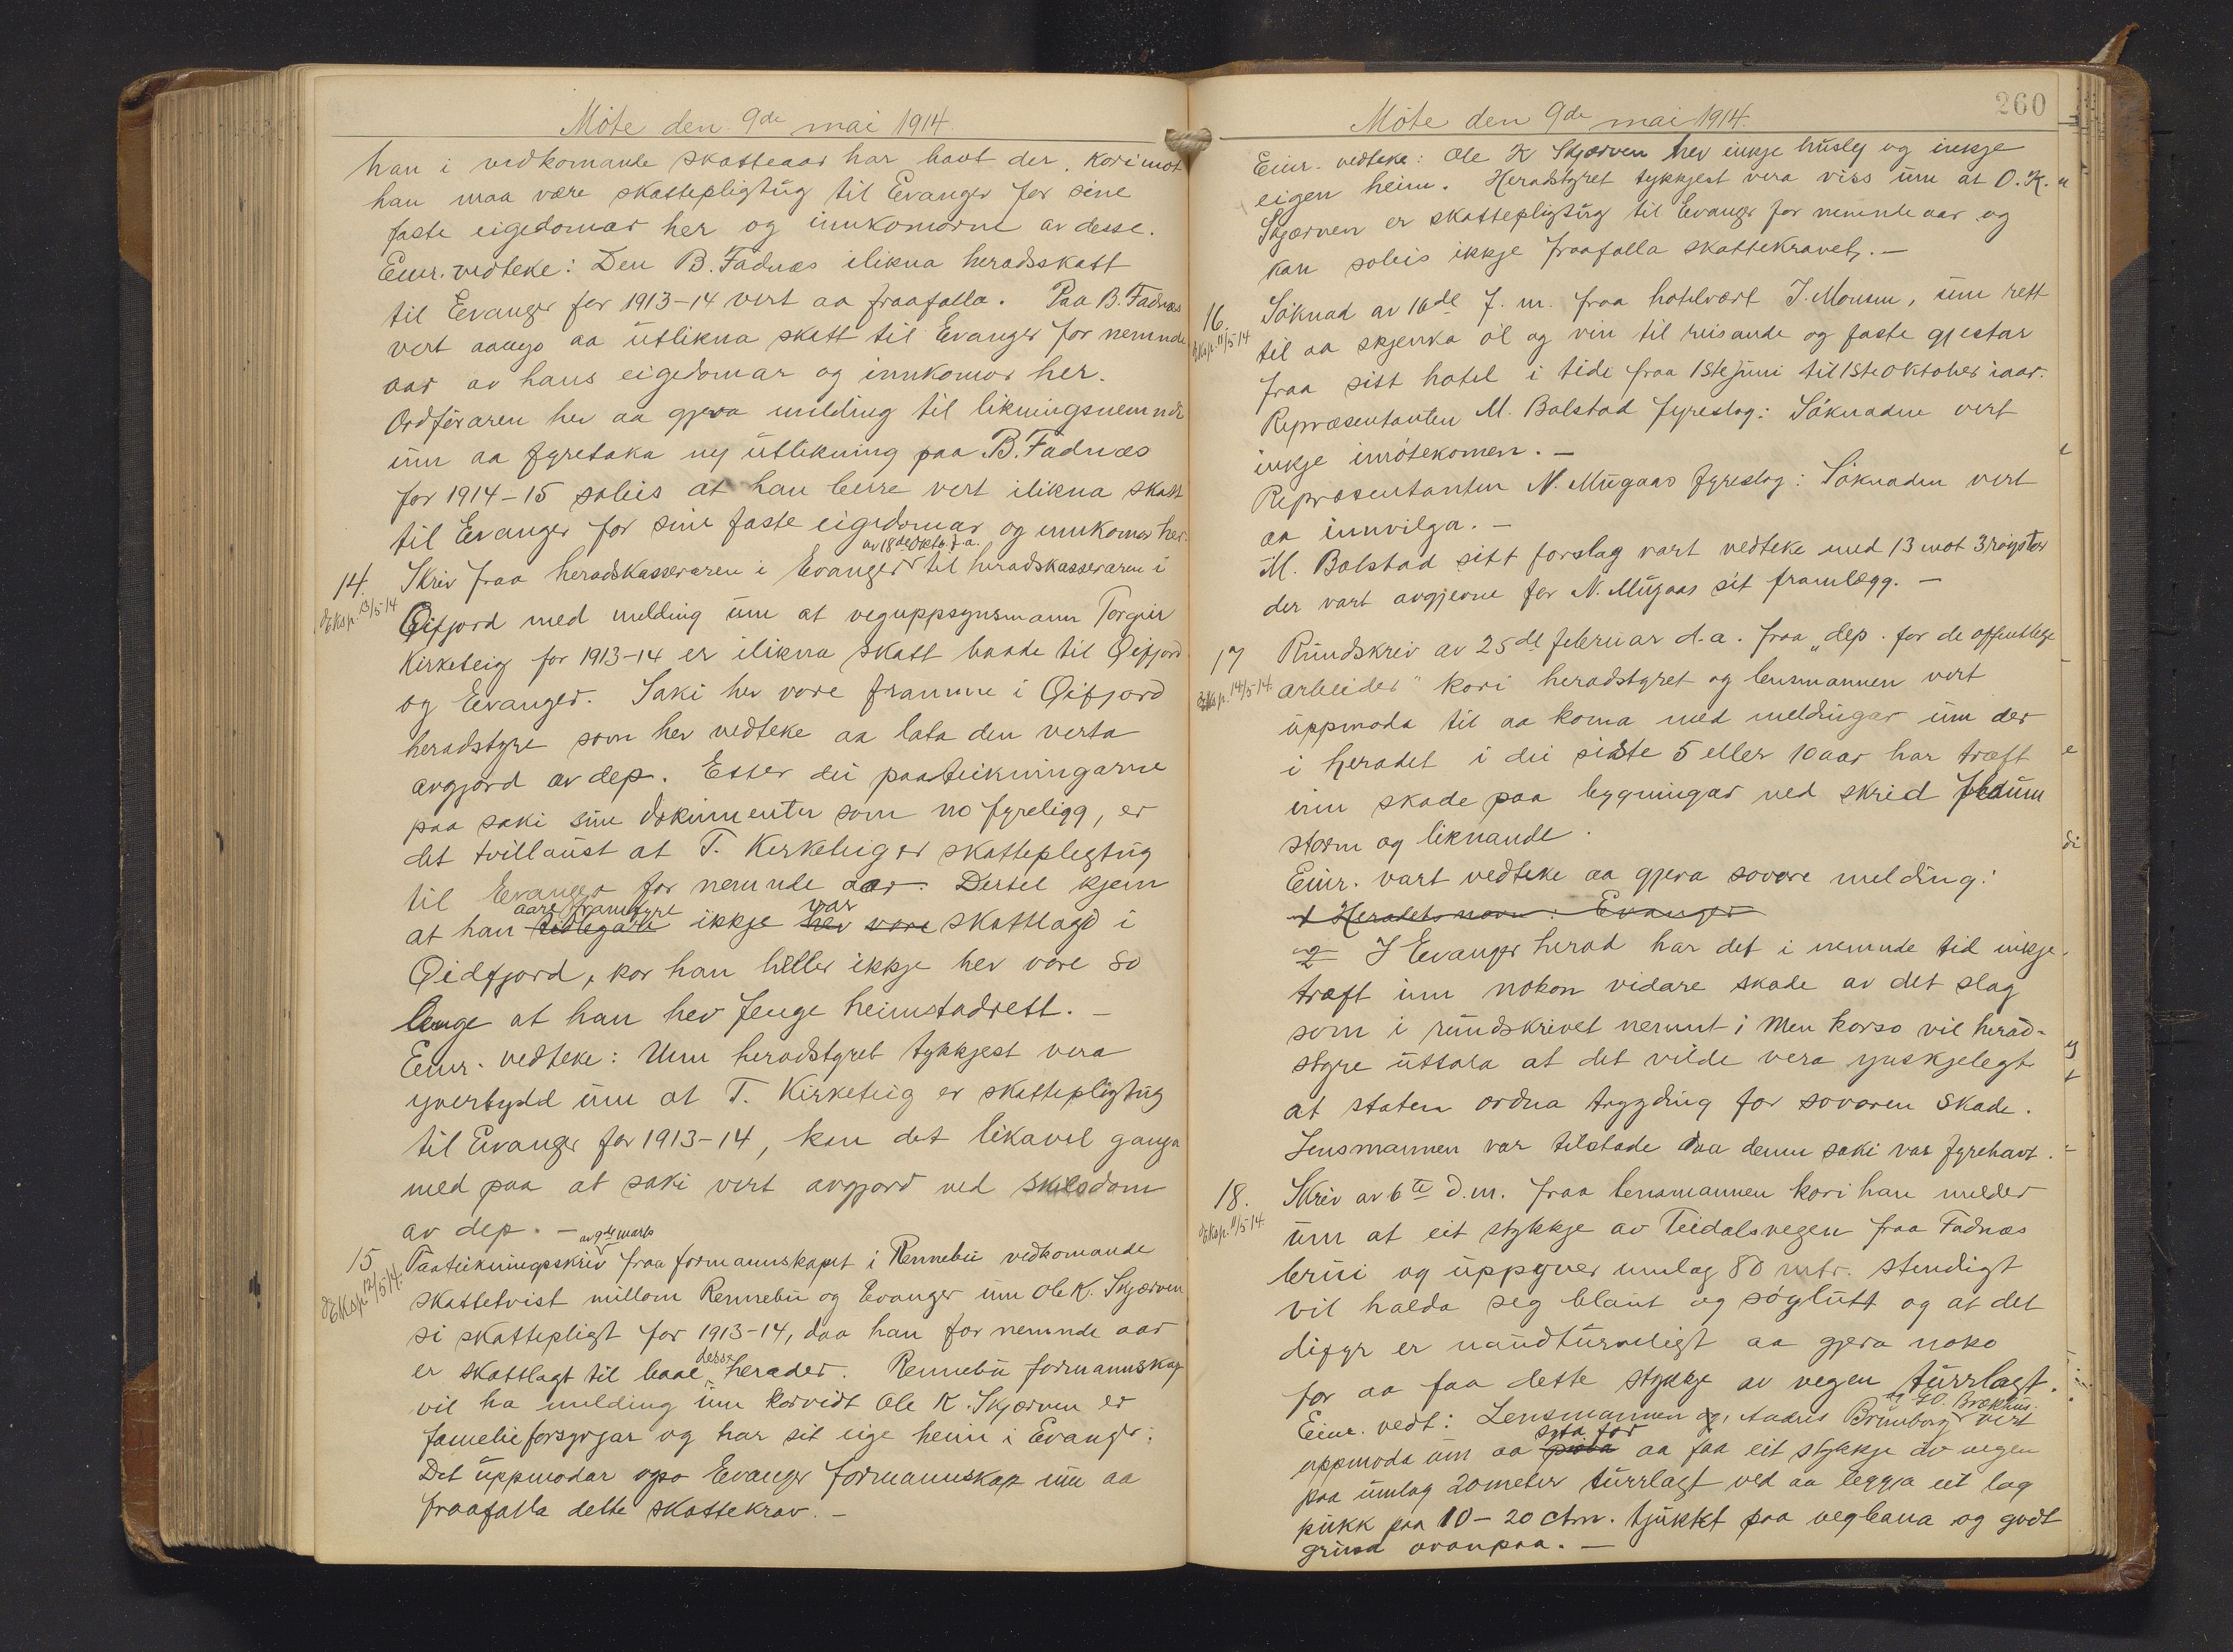 Möte den 9de mai 1914
han i vedkomande skatteaar har havt der, korimot
han maa være skattepligtug til Evanger for sine
faste eigedomar her og innkomorne av desse.
Einr. vedteke: Den B. Fadnæs ilikna heradsskatt
til Evanger for 1913-14 vert aa fraafalla. Paa B. Fadnæs
vert aa utlikna skatt til Evanger for nemnde
aar av hans eigedomar og innkomor her.
Ordföraren hev aa gjeva melding til likningsnemndi
um aa fyretaka ny utlikning paa B. Fadnæs
for 1914-15 soleis at han berre vert ilikna skatt
til Evanger for sine faste eigedomar og innkomor her.
av 18de oktb. f.a.
14. Skriv fraa heradskasseraren i Evanger til heradskasseraren i
Eksp. 13/5-14 Eifjord med melding um at veguppsynsmann Torgeir
Kirketeig for 1913-14 er ilikna skatt baade til Eifjord
og Evanger. Saki hev vore framme i Eifjord
heradstyre som hev vedteke aa lata den verta
avgjord av dep. Etter dei paateikningarne
paa saki sine dokumenter som no fyreligg, er
det tvillaust at T. Kirketeig er skattepligtug
til Evanger for nemnde aar. Dertil kjem
aaret framfyre var
at han tidlegare ikkje hev vore skattlagd i
Eidfjord, kor han heller ikkje hev vore so
lenge at han hev fenge heimstadrett. —
Einr. vedteke: Um heradstyret tykkjest vera
yvertydd um at T. Kirketeig er skattepligtug
til Evanger for 1913-14, kan det likavel ganga
med paa at saki vert avgjord ved skilsdom
av dep. —
av 9de marts
15 Paateikningsskriv fraa formannskapet i Rennebu vedkomande
Eksp. 12/5 14. skattetvist millom Rennebu og Evanger um Ole K. Skjærven
si skattepligt for 1913-14, daa han for nemnde aar
desse
er skattlagt til baae herader. Rennebu formannskap
vil ha melding um korvidt Ole K. Skjærven er
familieforsyrgjar og har sit eige heim i Evanger.
Det uppmodar ogso Evanger formannskap um aa
fraafalla dette skattekrav. —
260
Möte den 9de mai 1914.
Einr. vedteke: Ole K Skjærven hev inkje husly og inkje
eigen heim. Heradstyret tykkjest vera viss um at O. K.
Skjærven er skattepligtug til Evanger for nemnde aar og
kan soleis ikkje fraafalla skattekravet. —
16. Söknad av 16de f. m. fraa hotelvært J. Monsen, um rett
Eksp. 11/5-14 til aa skjenka öl og vin til reisande og faste gjestar
fraa sitt hotel i tidi fraa 1ste juni til 1ste oktober iaar.
Repræsentanten M. Bolstad fyreslog: Söknaden vert
inkje imötekomen. —
Repræsentanten N. Mugaas fyreslog: Söknaden vert
aa innvilga. —
M. Bolstad sitt forslag vart vedteke med 13 mot 3 röyster
der vart avgjevne for N. Mugaas sit framlegg. —
17 Rundskriv av 25de februar d.a. fraa „dep. for de offentlege
Eksp. 14/5-14. arbeider" kori heradstyret og lensmannen vert
uppmoda til aa koma med meldingar um der
i heradet i dei siste 5 eller 10 aar har træft
inn skade paa bygningar ved skrid flaum
storm og liknande.
Einr. vart vedteke aa gjeva sovore melding:
1 Heradets navn: Evanger
2 I Evanger herad har det i nemnde tid inkje
træft inn nokon vidare skade av det slag
som i rundskrivet nemnt; Men korso vil herad-
styre uttala at det vilde vera ynskjelegt
at staten ordna trygding for sovoren skade.
Lensmannen var tilstade daa denne saki var fyrehavt.
18. Skriv av 6te d.m. fraa lensmannen kori han melder
Eksp. 11/5 14. um at eit stykkje av Teidalsvegen fraa Fadnæs
brui og uppyver umlag 80 mtr. stendigt
vil halda seg blaut og söglutt og at det
difyr er naudturveligt aa gjera noko
for aa faa dette stykkje av vegen turrlagt.
og G.O. Brækhus.
Einr. vedt: Lensmannen og, Andres Brunborg vert
syta for
uppmoda um aa aa faa eit stykkje av vegen
paa umlag 20 meter turrlagt ved aa leggja eit lag
pukk paa 10-20 ctm. tjukkt paa vegbana og godt
grusa ovanpaa. —